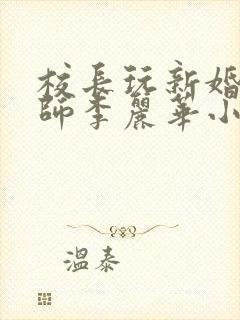 校長玩新婚
師李麗華小
溫泰